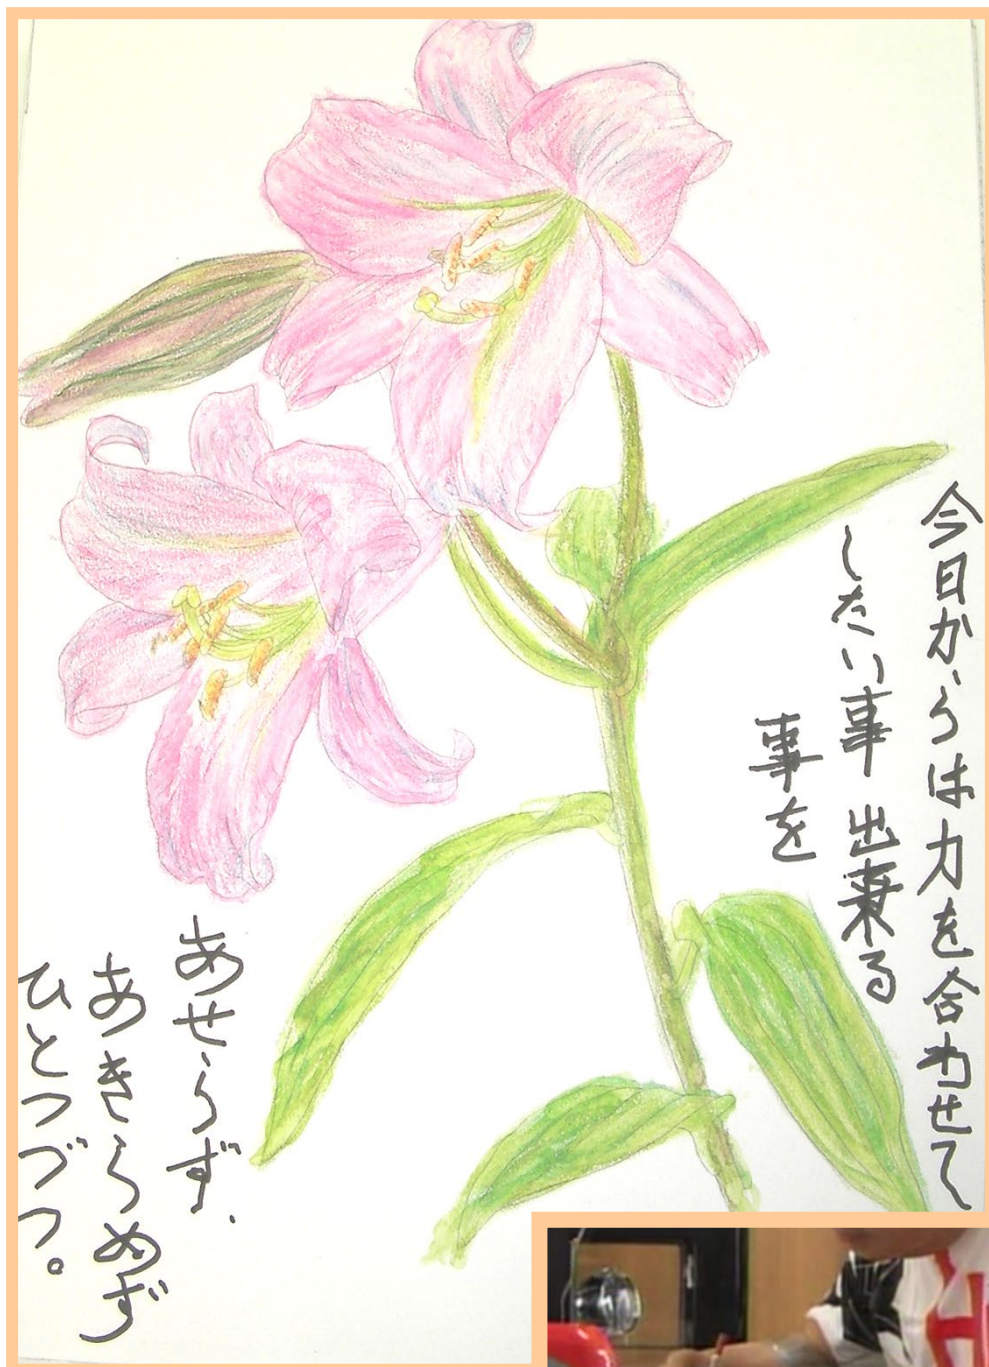 今日からは力を合わせて
したい事 出来る
事を
あせらず、
あきらめず
ひとつづつ。